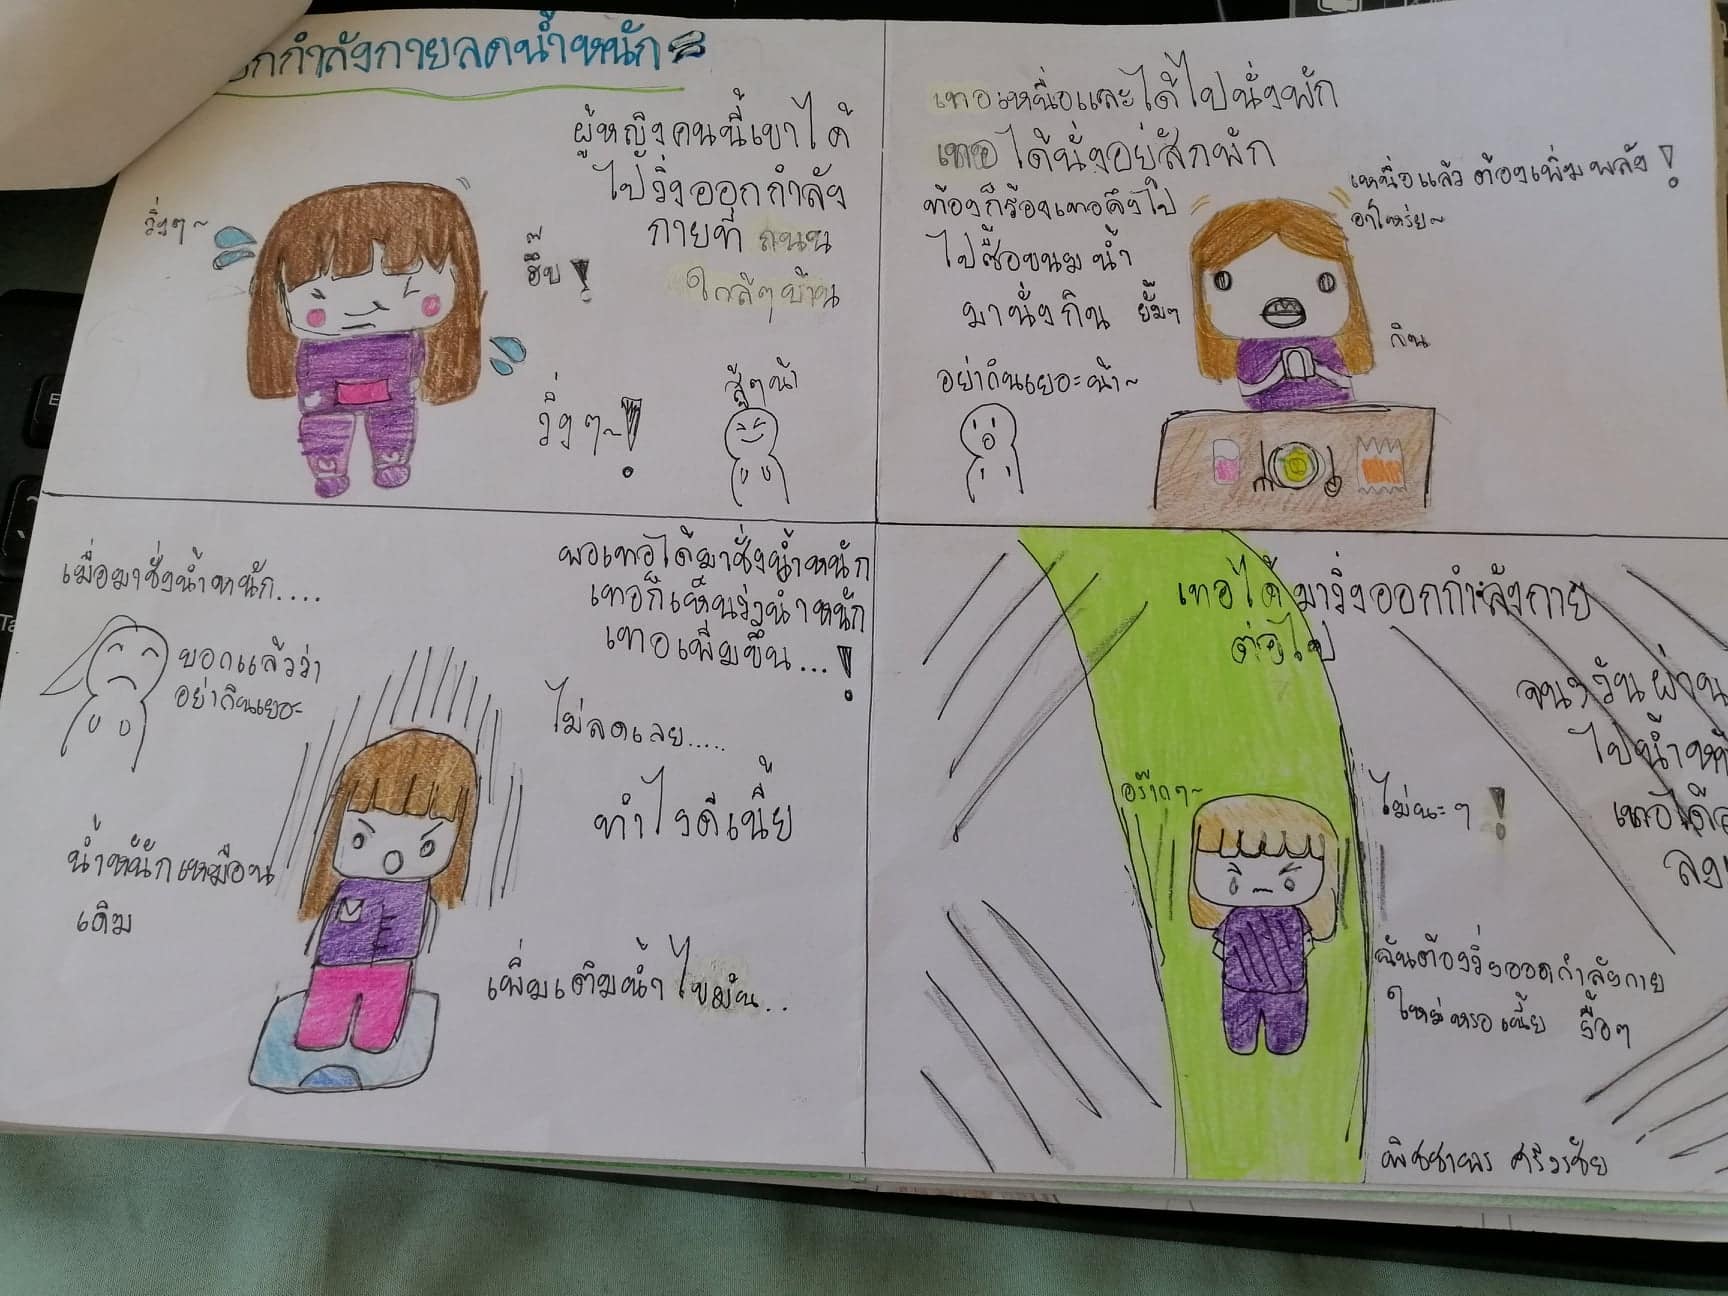 กกำลังกายลดน้ำหนัก
ผู้หญิงคนนี้เขาได้
ไปวิ่งออกกำลัง
กายที่ ถนน
ใกล้ๆบ้าน
วิ่งๆ~
ฮึ๊บ!
วิ่งๆ~!
สู้ๆน้า
เทอเหนื่อและได้ไปนั่งพัก
เทอได้นั่งอยู่สักพัก
ท้องก็ร้องเทอจึงไป
ไปซื้อขนม น้ำ
มานั่งกิน
เหนื่อแล้ว ต้องเพิ่มพลัง!
กิน
อย่ากินเยอะน้า~
เมื่อมาชั่งน้ำหนัก....
บอกแล้วว่า
อย่ากินเยอะ
พอเทอได้มาชั่งน้ำหนัก
เทอก็เห็นว่าน้ำหนัก
เทอเพิ่มขึ้น...!
ไม่ลดเลย.....
ทำไงดีเนี้ย
น้ำหนักเหมือน
เดิม
เพิ่มเติมน้ำไขมัน..
เทอได้มาวิ่งออกกำลังกาย
ต่อไป
วันผ่าน
ไปน้ำหนั
ลง
ไม่นะๆ!
ฉันต้องวิ่งออกกำลังกาย
ใหม่หรอเนี้ย